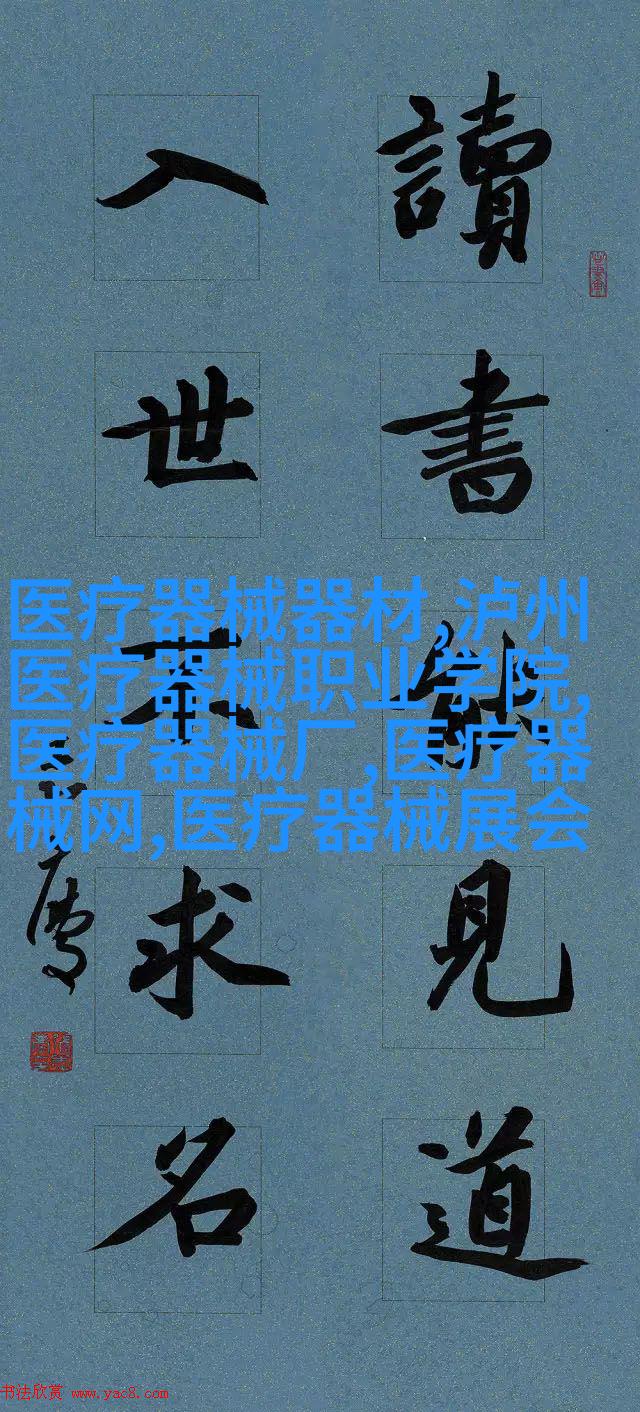 讀書能見道
入世不求名
医疗器械器材,泸州
医疗器械职业学院,
医疗器械厂,医疗器
械网,医疗器械展会
书法欣赏 www.yac8.com